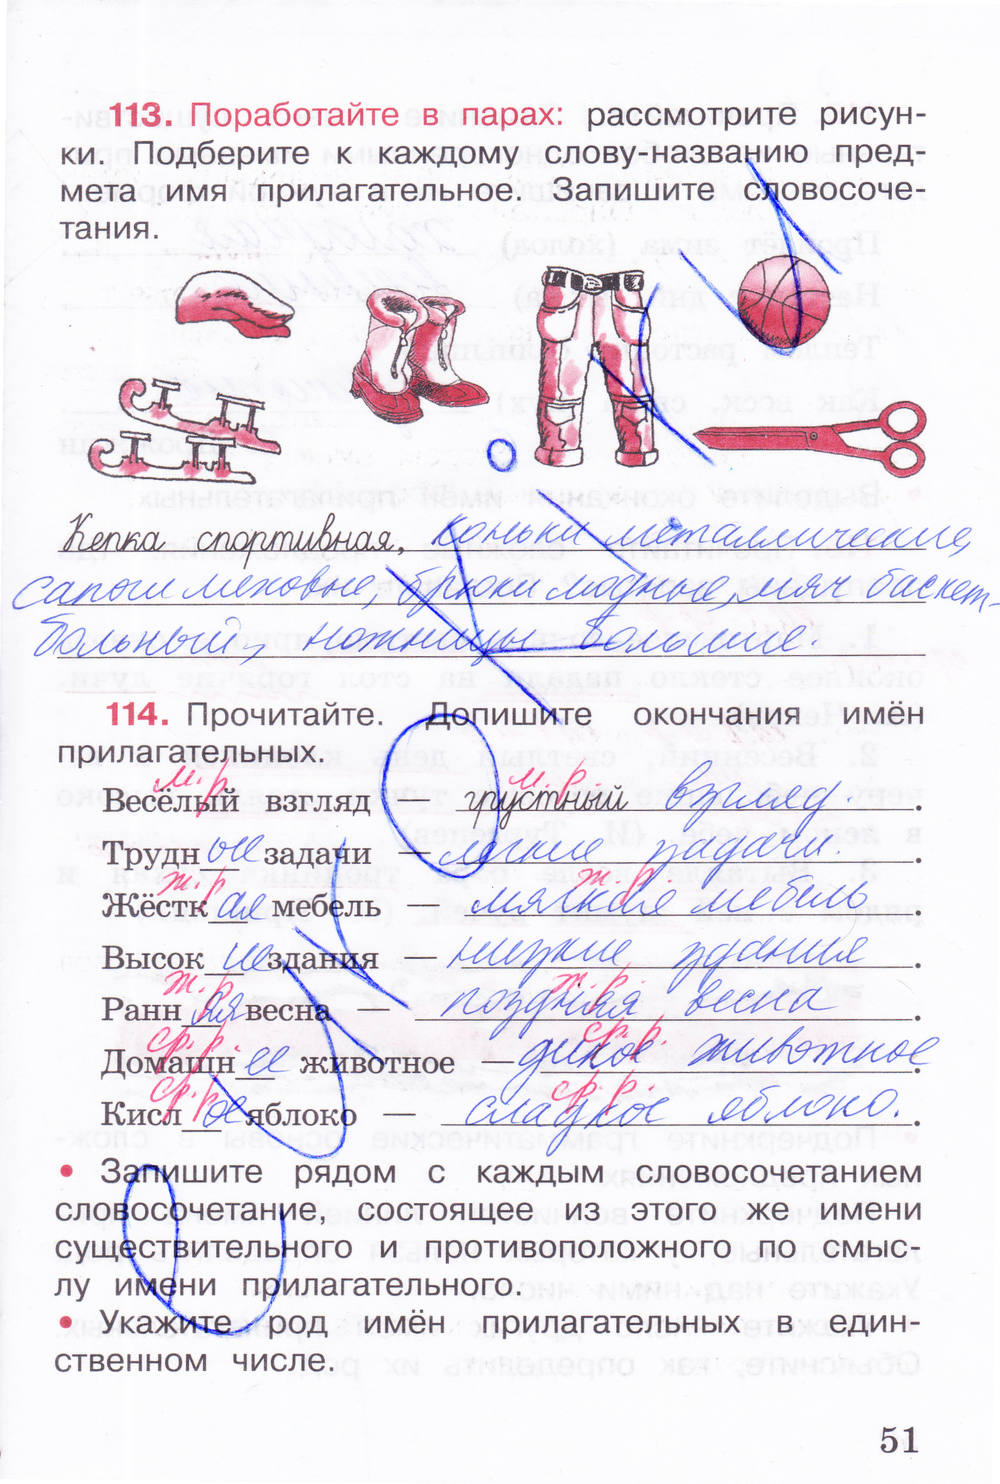 113. Поработайте в парах: рассмотрите рисун-
ки. Подберите к каждому слову-названию пред-
мета имя прилагательное. Запишите словосоче-
тания.
Кепка спортивная, коньки металлические,
сапоги меховые, брюки модные, мяч баскет-
больный, ножницы большие
114. Прочитайте. Допишите окончания имён
прилагательных.
м. р. м. р.
Весёлый взгляд — грустный взгляд.
Трудные задачи — легкие задачи.
ж. р. ж. р.
Жёсткая мебель — мягкая мебель.
Высокие здания — низкие здания.
ж. р. ж. р.
Ранняя весна — поздняя весна.
ср. р. ср. р.
Домашнее животное — дикое животное.
ср. р. ср. р.
Кислое яблоко — сладкое яблоко.
• Запишите рядом с каждым словосочетанием
словосочетание, состоящее из этого же имени
существительного и противоположного по смыс-
лу имени прилагательного.
• Укажите род имён прилагательных в един-
ственном числе.
51